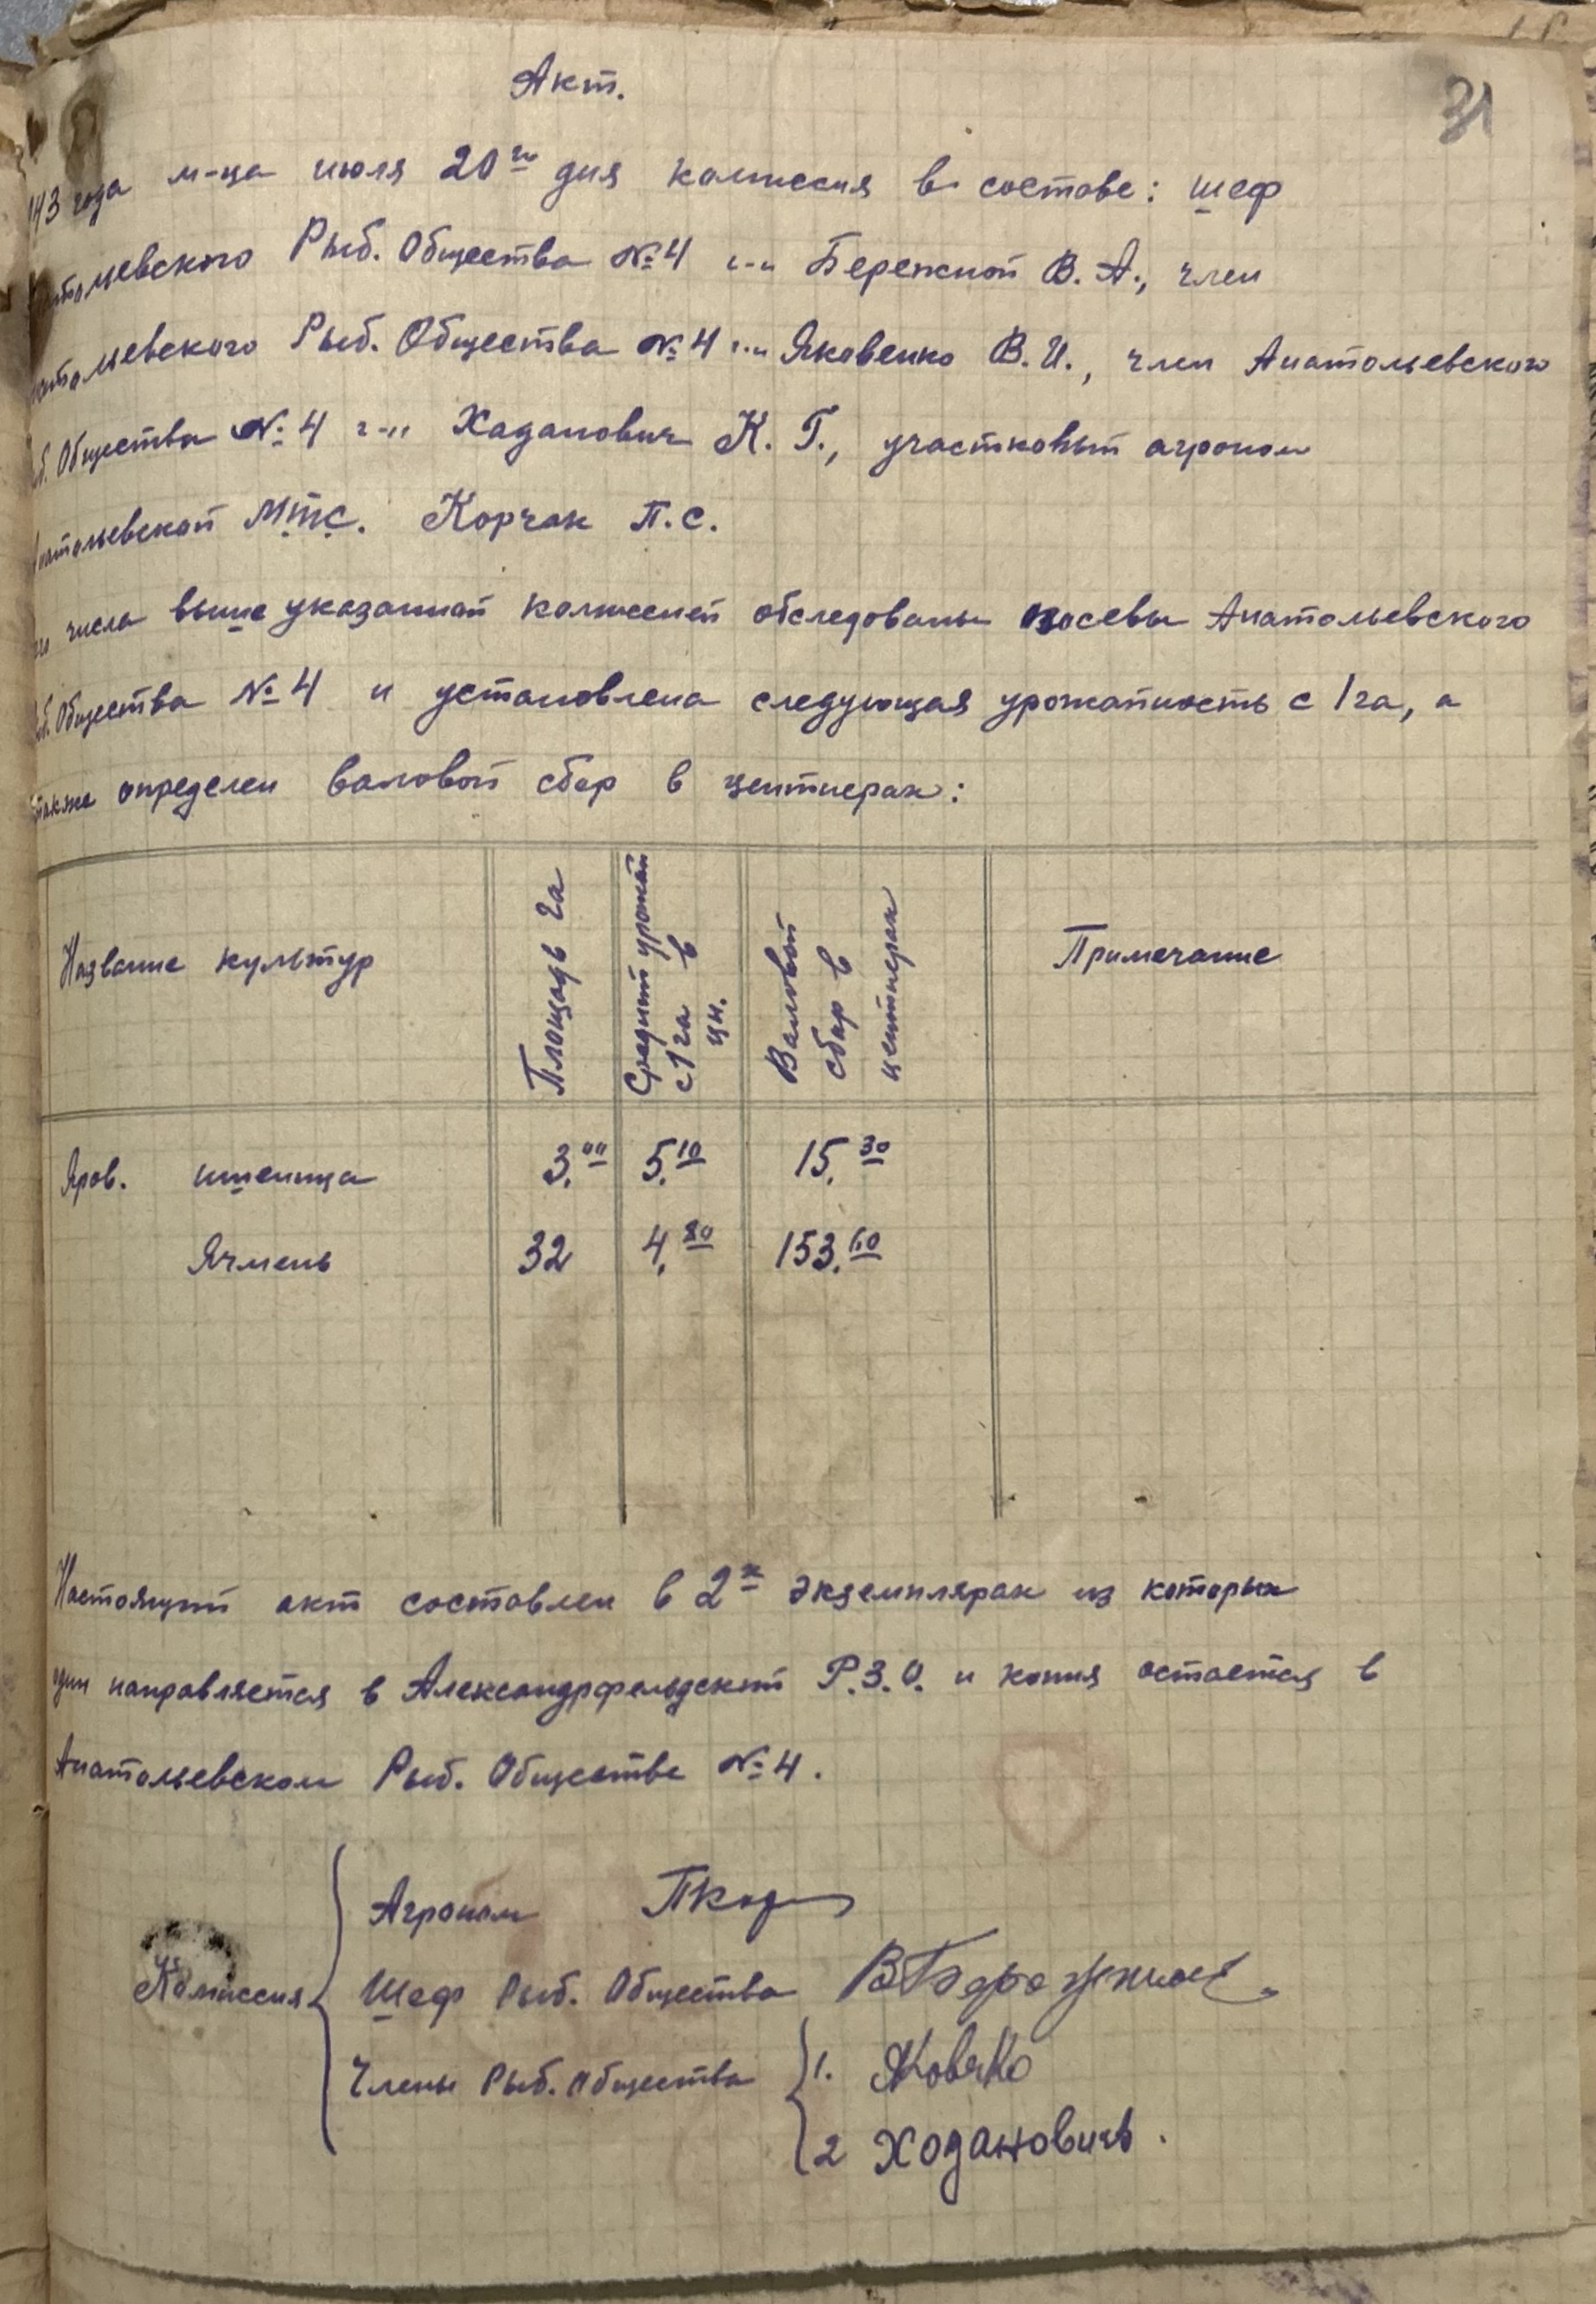 31
Акт.
143 года м-ца июля 20го дня комиссия в составе: шеф
натольевского Рыб. Общества №4 г-н Бережной В. А., член
натольевского Рыб. Общества №4 г-н Яковенко В. И., член Анатольевского
б. Общества №4 г-н Хаданович К. Г., участковый агроном
натольевской МТС. Корчак П. С.
го числа выше указанной комиссией обследованы посевы Анатольевского
б. Общества №4 и установлена следующая урожайность с 1 га, а
также определен валовой сбор в центнерах:
Название культур Площадь га Средний урожай с 1 га в цн. Валовой сбор в центнерах Примечание
Яров. пшеница 3.00 5.10 15.30
Ячмень 32 4.80 153.60
Настоящий акт составлен в 2х экземплярах из которых
один направляется в Александрфельдский Р.З.О. и копия остается в
Анатольевском Рыб. Обществе №4.
Комиссия
Агроном
Шеф Рыб. Общества ВБережной
Члены Рыб. Общества 1.
2 Ходановичь.